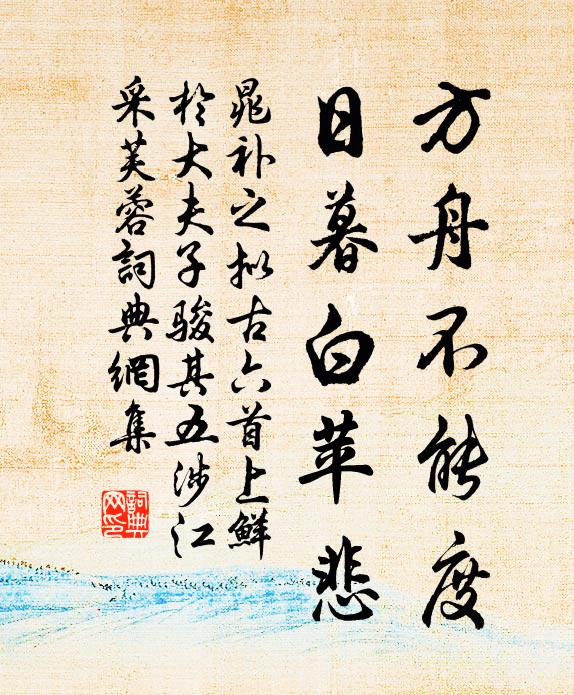 方舟不能度
日暮白苹悲
晁补之拟古六首上鲜
於大夫子骏其五涉江
采芙蓉詞典網集
詞典
网印